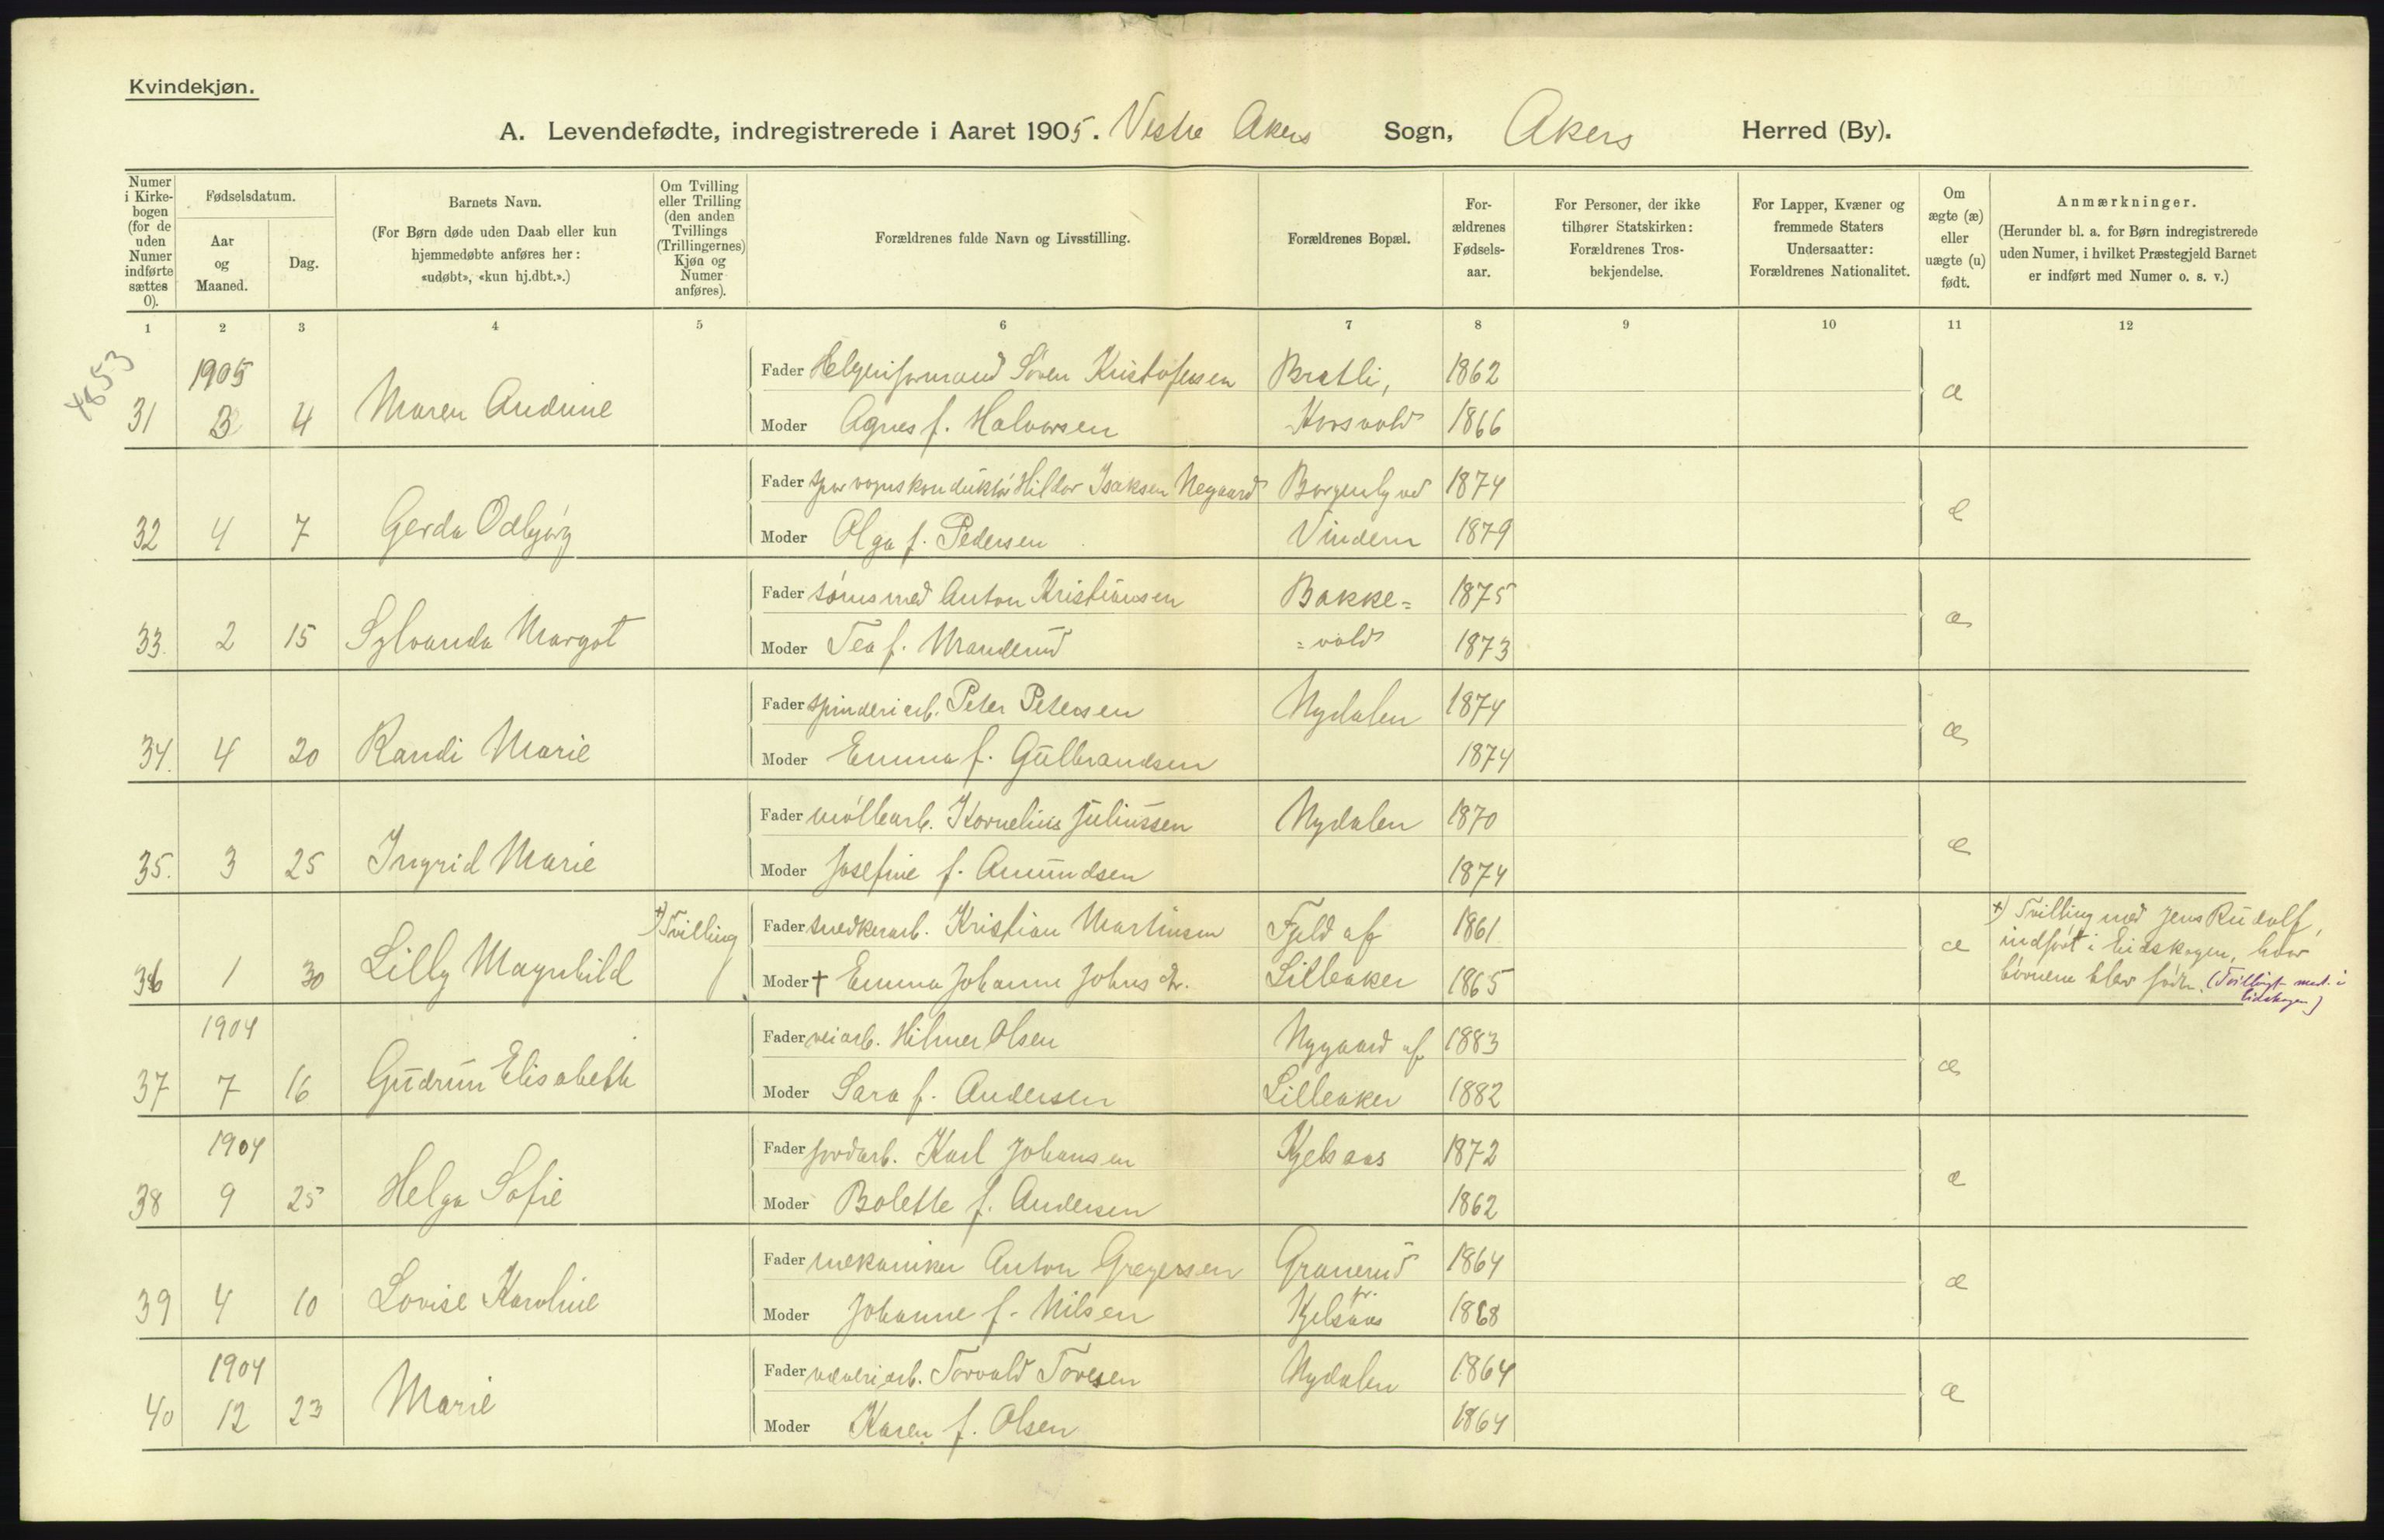 Kvindekjøn.
A. Levendefødte, indregistrerede i Aaret 1905. Vestre Akers Sogn, Akers Herred (By).
Numer i Kirke-bogen (for de uden Numer indførte sættes 0).
Fødselsdatum.
Aar og Maaned.
Dag.
Barnets Navn.
(For Børn døde uden Daab eller kun hjemmedøbte anføres her: «udøbt», «kun hj.dbt.».)
Om Tvilling eller Trilling (den anden Tvillings (Trillingernes) Kjøn og Numer anføres).
Forældrenes fulde Navn og Livsstilling.
Forældrenes Bopæl.
For-ældrenes Fødsels-aar.
For Personer, der ikke tilhører Statskirken: Forældrenes Tros-bekjendelse.
For Lapper, Kvæner og fremmede Staters Undersaatter: Forældrenes Nationalitet.
Om ægte (æ) eller uægte (u) født.
Anmærkninger.
(Herunder bl. a. for Børn indregistrerede uden Numer, i hvilket Præstegjeld Barnet er indført med Numer o. s. v.)
1 2 3 4 5 6 7 8 9 10 11 12
4853
1905 Fader Søren Kristofersen Bratli, 1862
31 3 4 Maren Andrine Moder Agnes f. Halvorsen Korsvold 1866 æ
Fader sporvognskonduktør Hildor Isaksen Negaard Borgenly ved 1874
32 4 7 Gerda Odbjørg Moder Olga f. Pedersen Vindern 1879 æ
Fader Anton Kristiansen Bakke= 1875
33. 2 15 Sylvanda Margot Moder Tea f. =vold 1873 æ
Fader spinderiarb. Peter Petersen Nydalen 1874
34. 4 20 Randi Marie Moder Emma f. Gulbrandsen 1874 æ
Fader møllearb. Kornelius Juliussen Nydalen 1870
35. 3 25 Ingrid Marie Moder Josefine f. Amundsen 1874 æ
+) Tvilling Fader snedkerarb. Kristian Martinsen Fjeld af 1861 +) Tvilling med Jens Rudolf,
36 1 30 Lilly Magnhild Moder † Emma Johanne Johns dr. Lilleaker 1865 æ indført i Eidskogen, hvor
børnene blev født. (Tvilling medt. i
Eidskogen)
1904 Fader veiarb. Hilmer Olsen Nygaard af 1883
37 7 16 Gudrun Elisabeth Moder Sara f. Andersen Lilleaker 1882 æ
1904 Fader jordarb. Karl Johansen Kjelsaas 1872
38 9 25 Helga Sofie Moder Bolette f. Andersen 1862 æ
Fader mekaniker Anton Gregersen Granerud 1864
39 4 10 Lovise Karoline Moder Johanne f. Nilsen pr. Kjelsaas 1868 æ
1904 Fader væveriarb. Torvald Toresen Nydalen 1864
40 12 23 Marie Moder Karen f. Olsen 1864 æ